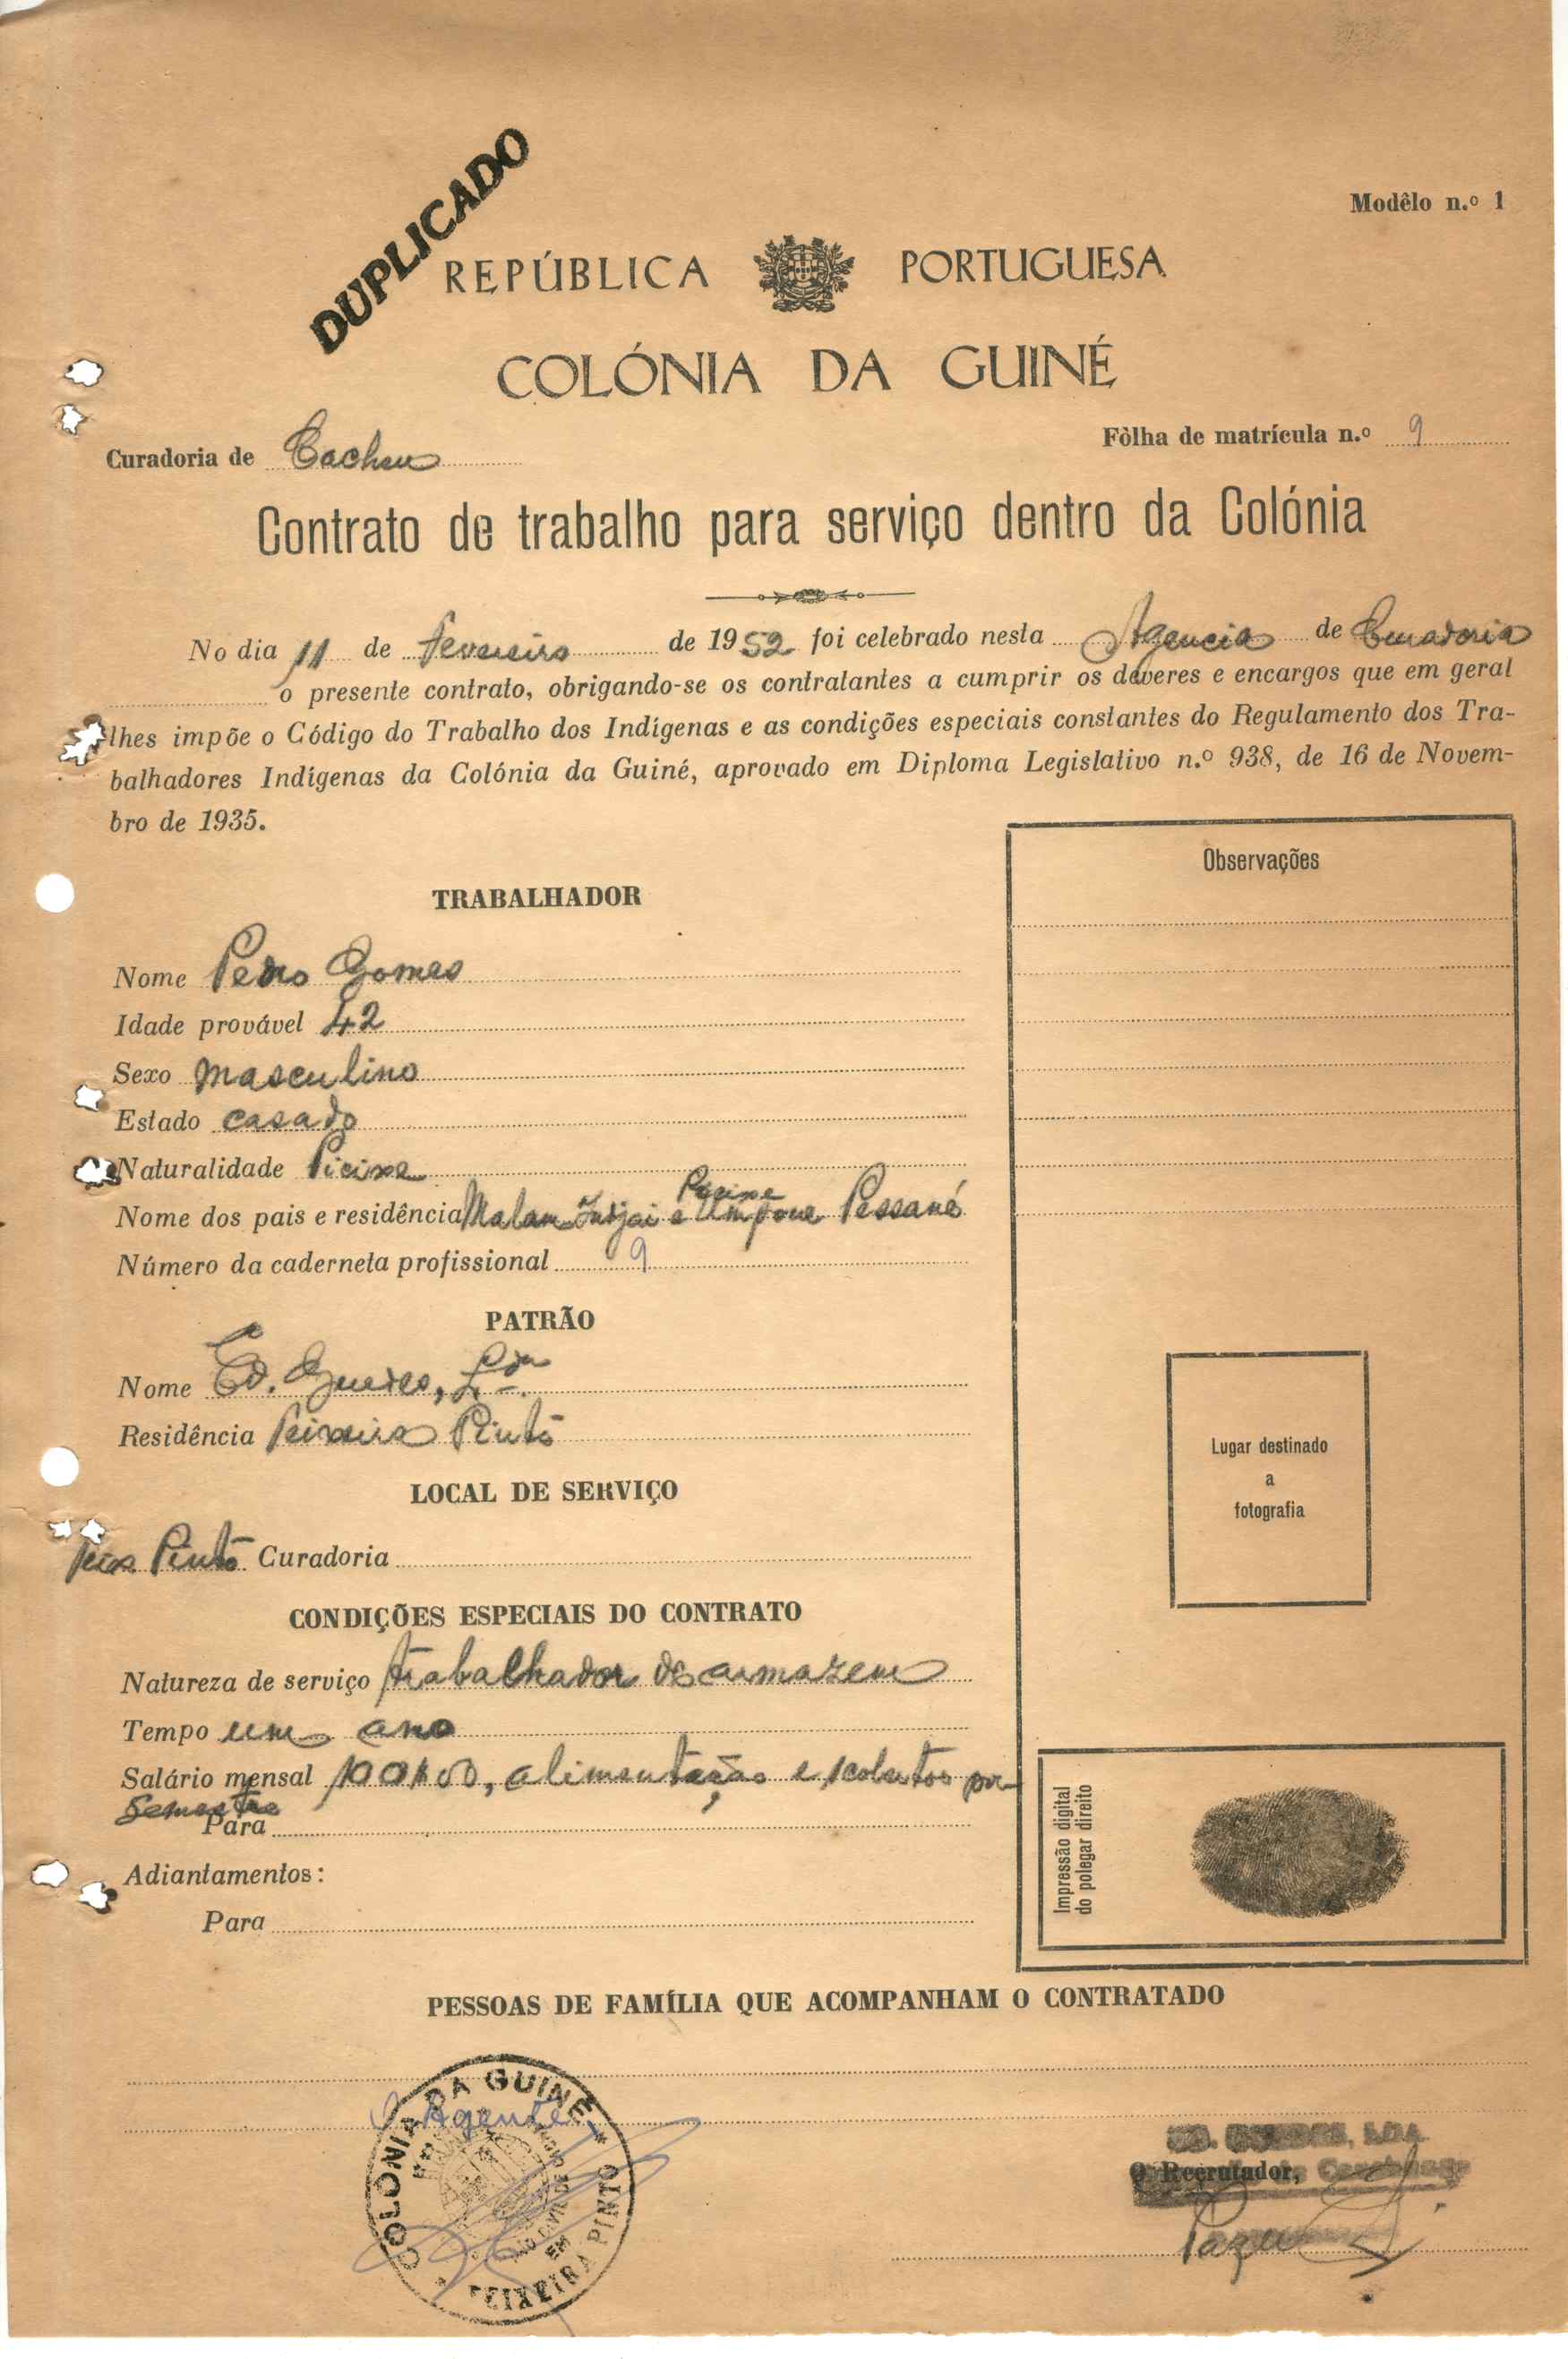 DUPLICADO
Modêlo n.º 1
REPÚBLICA PORTUGUESA
COLÓNIA DA GUINÉ
Curadoria de Cacheu
Fôlha de matrícula n.º 9
Contrato de trabalho para serviço dentro da Colónia
No dia 11 de fevereiro de 1952 foi celebrado nesta Agencia de Curadoria
o presente contrato, obrigando-se os contratantes a cumprir os deveres e encargos que em geral
lhes impõe o Código do Trabalho dos Indígenas e as condições especiais constantes do Regulamento dos Tra-
balhadores Indígenas da Colónia da Guiné, aprovado em Diploma Legislativo n.º 938, de 16 de Novem-
bro de 1935.
Observações
TRABALHADOR
Nome Pedro Gomes
Idade provável 42
Sexo masculino
Estado casado
Naturalidade Picixe
Pecixe
Nome dos pais e residência Malam Indjai e Pessané
Número da caderneta profissional 9
PATRÃO
Nome Ed. Guedes, Lda.
Residência Teixeira Pinto
LOCAL DE SERVIÇO
Teix Pinto Curadoria
Lugar destinado
a
fotografia
CONDIÇÕES ESPECIAIS DO CONTRATO
Natureza de serviço trabalhador de armazem
Tempo um ano
Salário mensal 100$00, alimentação e por
semestre
Para
Adiantamentos:
Para
Impressão digital
do polegar direito
PESSOAS DE FAMÍLIA QUE ACOMPANHAM O CONTRATADO
COLÓNIA DA GUINÉ
O Agente
EM
TEIXEIRA PINTO
ED. GUEDES, LDA.
O Recrutador,